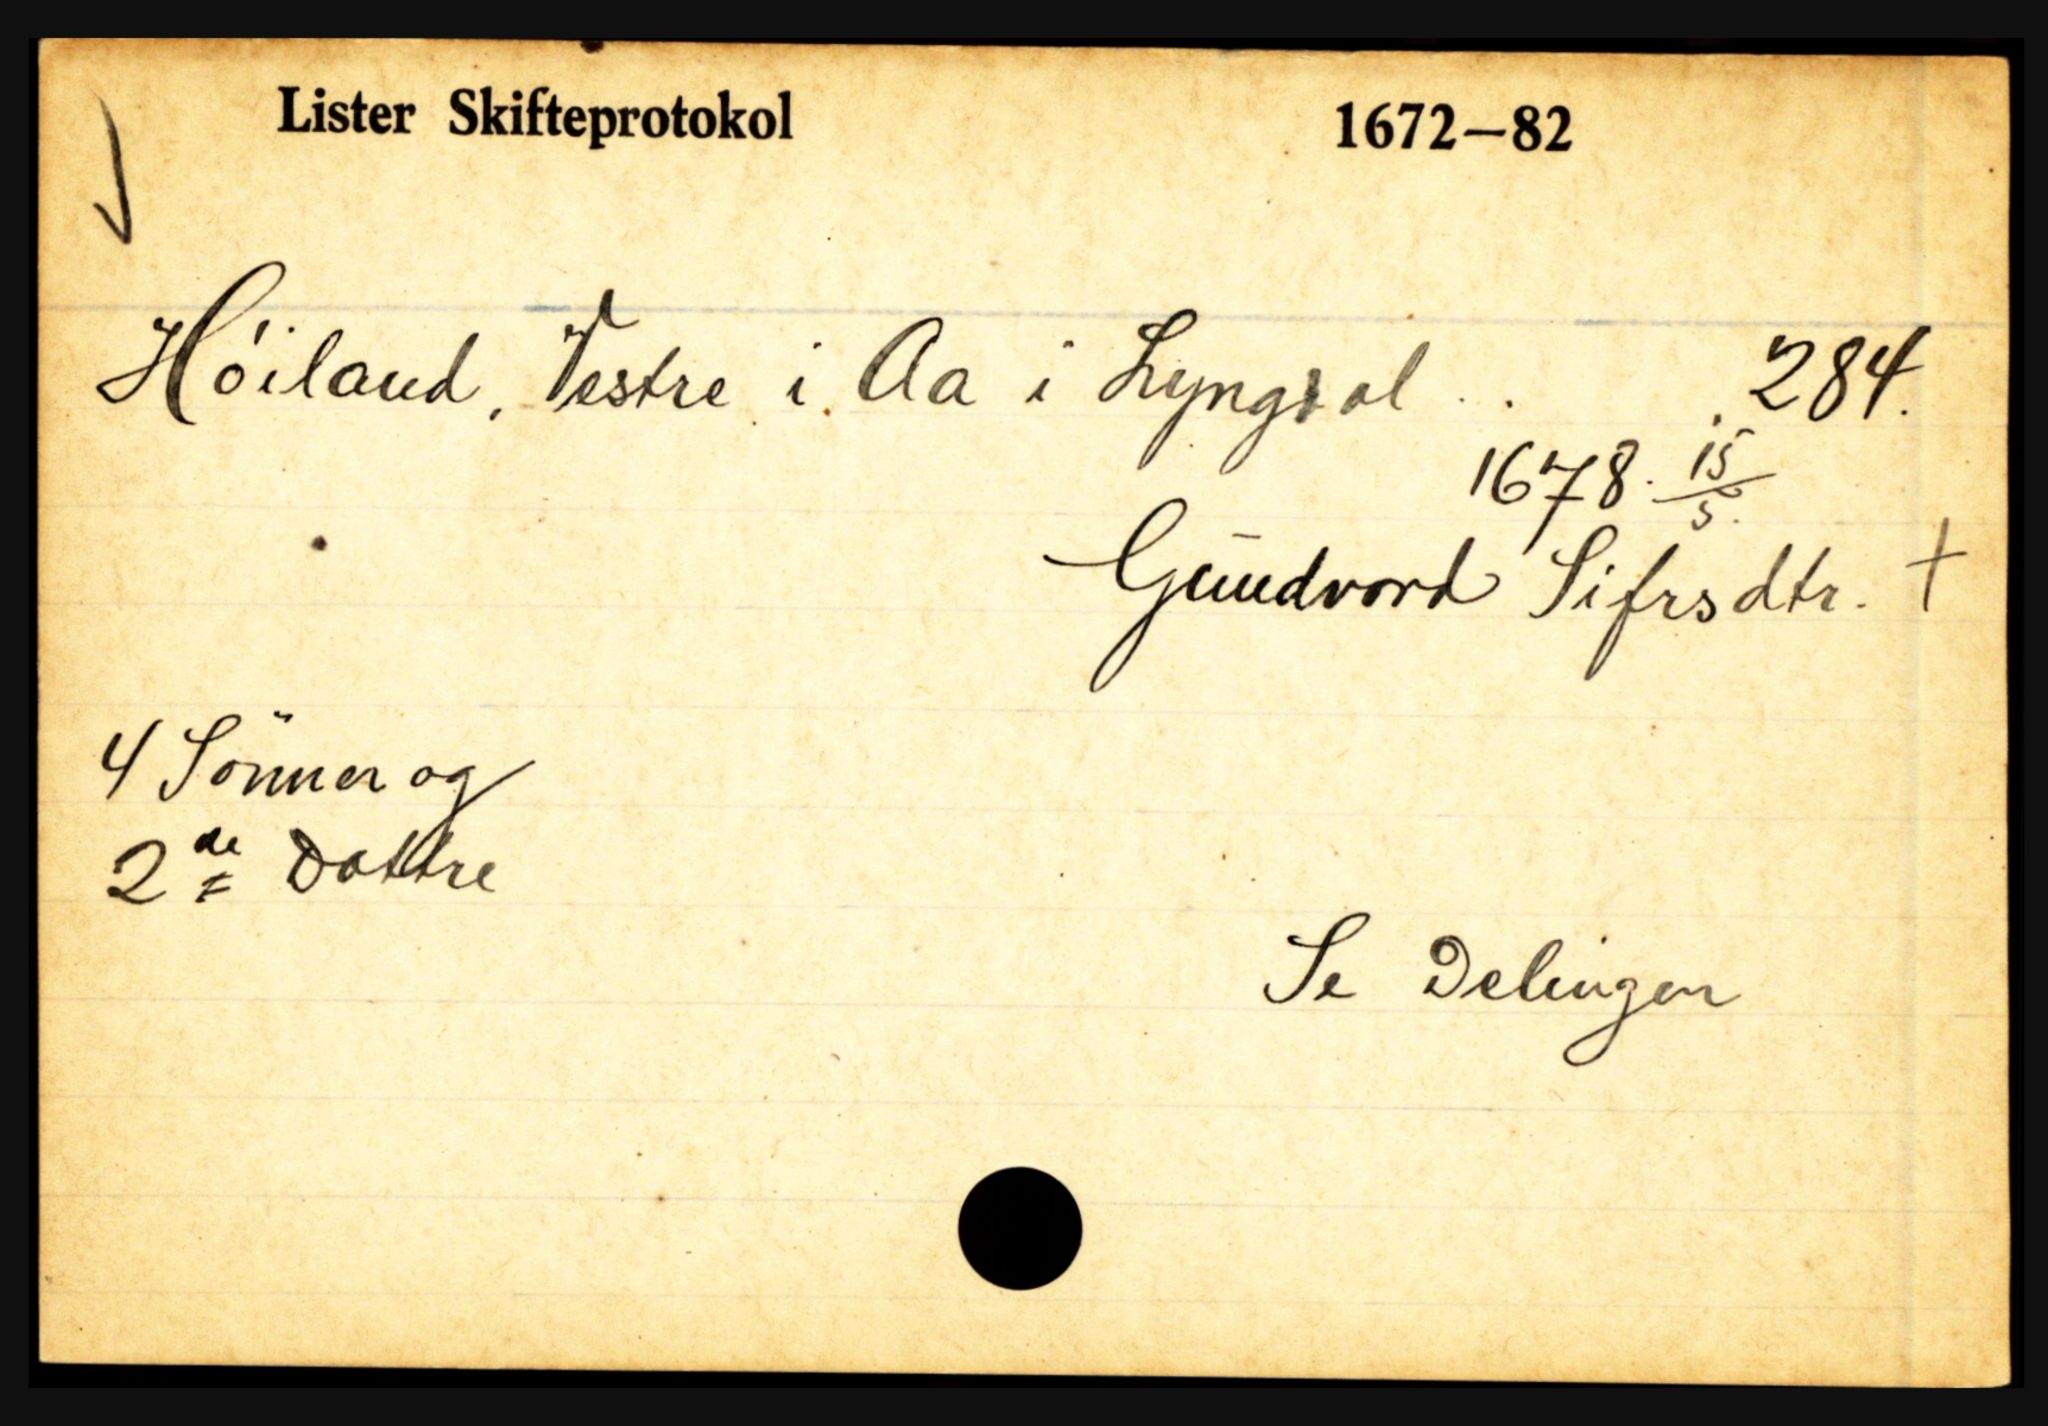 Lister Skifteprotokol 1672–82
Höiland, Vestre i Aa i Lyngdal . . . 284.
1678. 15/5.
Gundvord Sifrsdtr. +
4 Sönner og
2de Dottre
Se Delingen